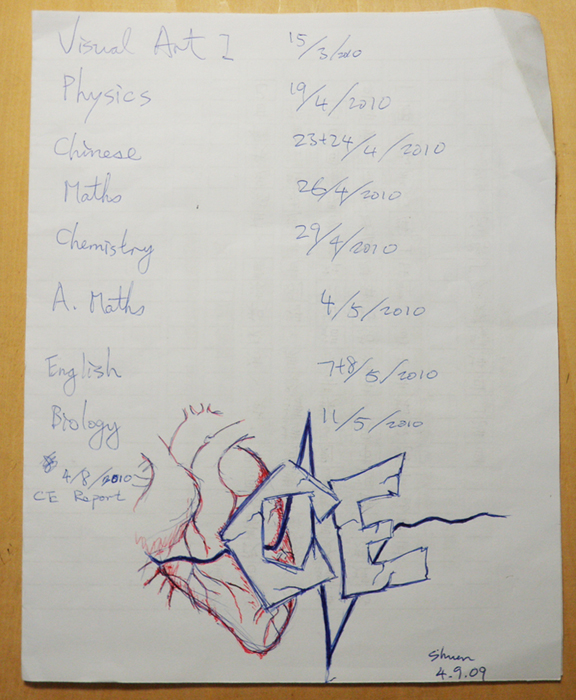 Visual Art I 15/3/2010
Physics 19/4/2010
Chinese 23+24/4/2010
Maths 26/4/2010
Chemistry 29/4/2010
A. Maths 4/5/2010
English 7+8/5/2010
Biology 11/5/2010
4/8/2010
CE Report
CE
Shuen
4.9.09